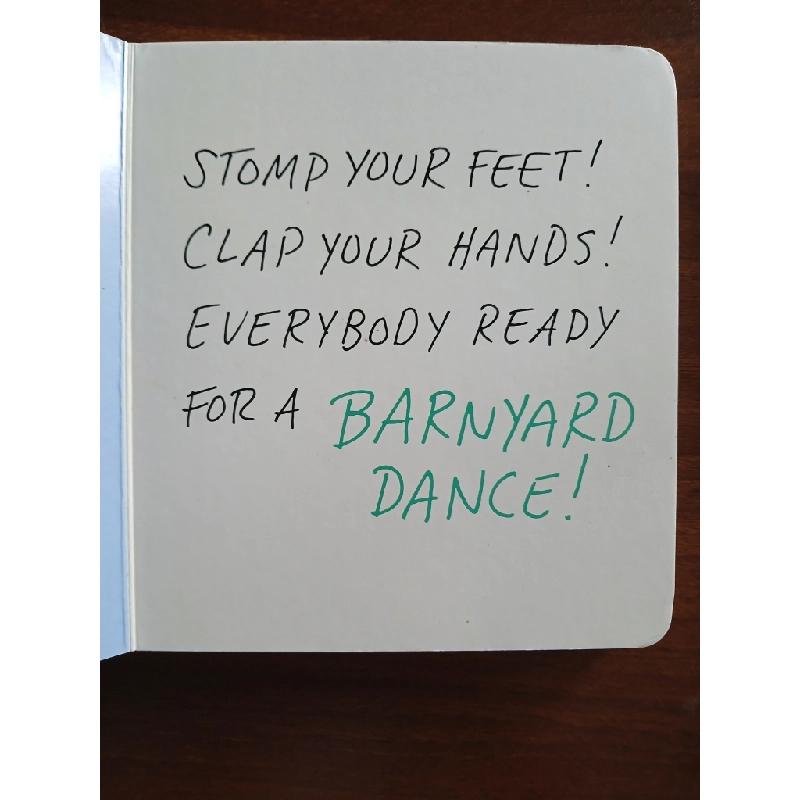 STOMP YOUR FEET!
CLAP YOUR HANDS!
EVERYBODY READY
FOR A BARNYARD
DANCE!